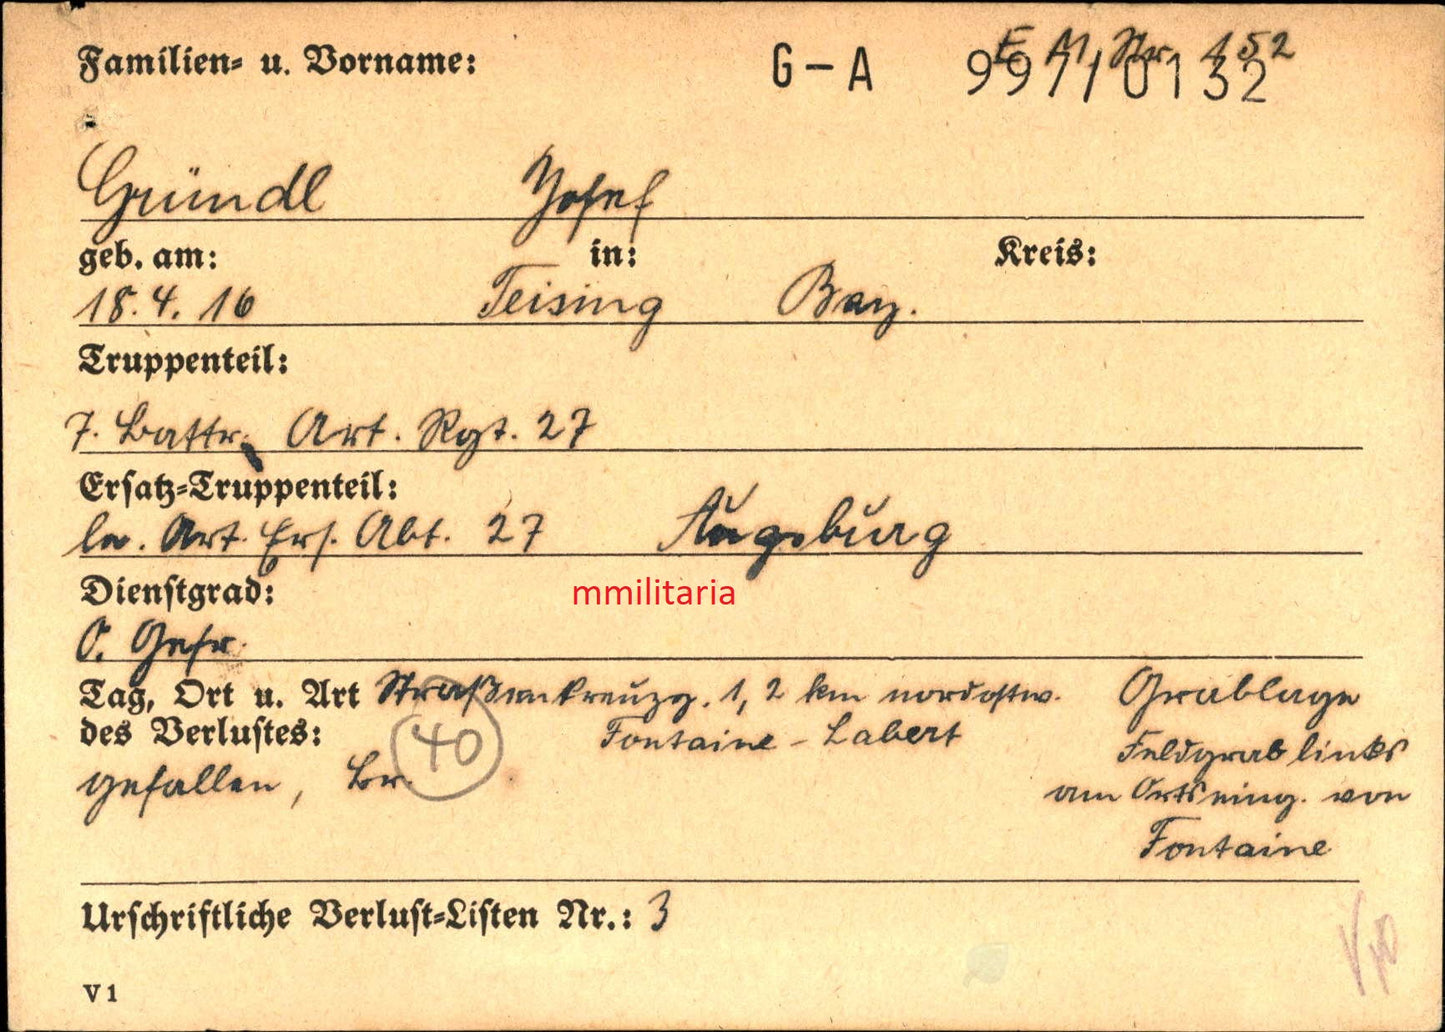 Familien- u. Vorname: G-A 997/0132
E M Nr. 152
Gründl Josef
geb. am: in: Kreis:
18.4.16 Teising Bay.
Truppenteil:
7. Battr. Art. Rgt. 27
Ersatz-Truppenteil:
le. Art. Ers. Abt. 27 Augsburg
Dienstgrad:
O. Gefr.
mmilitaria
Tag, Ort u. Art Straßenkreuzg. 1,2 km nordostw. Grablage
des Verlustes: 40 Fontaine-Labert Feldgrab links
gefallen, Br. am Ortseing. von
Fontaine
Urschriftliche Verlust-Listen Nr.: 3
V 1